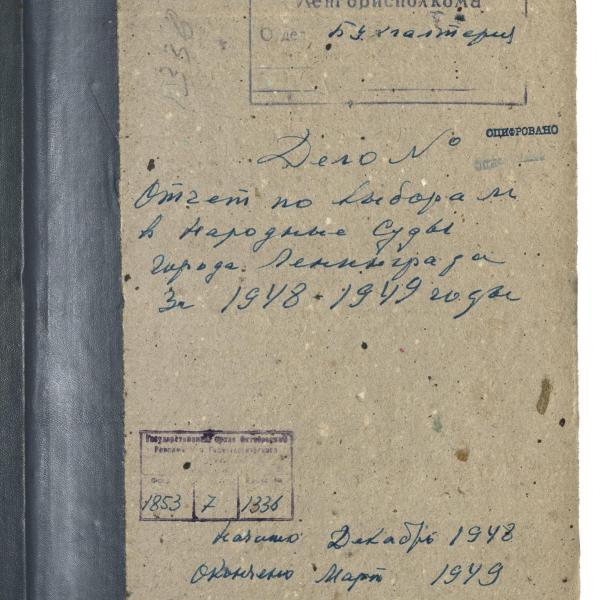 1336
Ленгорисполкома
Отдел Бухгалтерия
ОЦИФРОВАНО
Дело №
Отчет по выборам
в Народные Суды
города Ленинграда
За 1948-1949 годы
Государственный Архив Октябрьской
Революции и
1853 7 1336
Начато Декабрь 1948
Окончено Март 1949